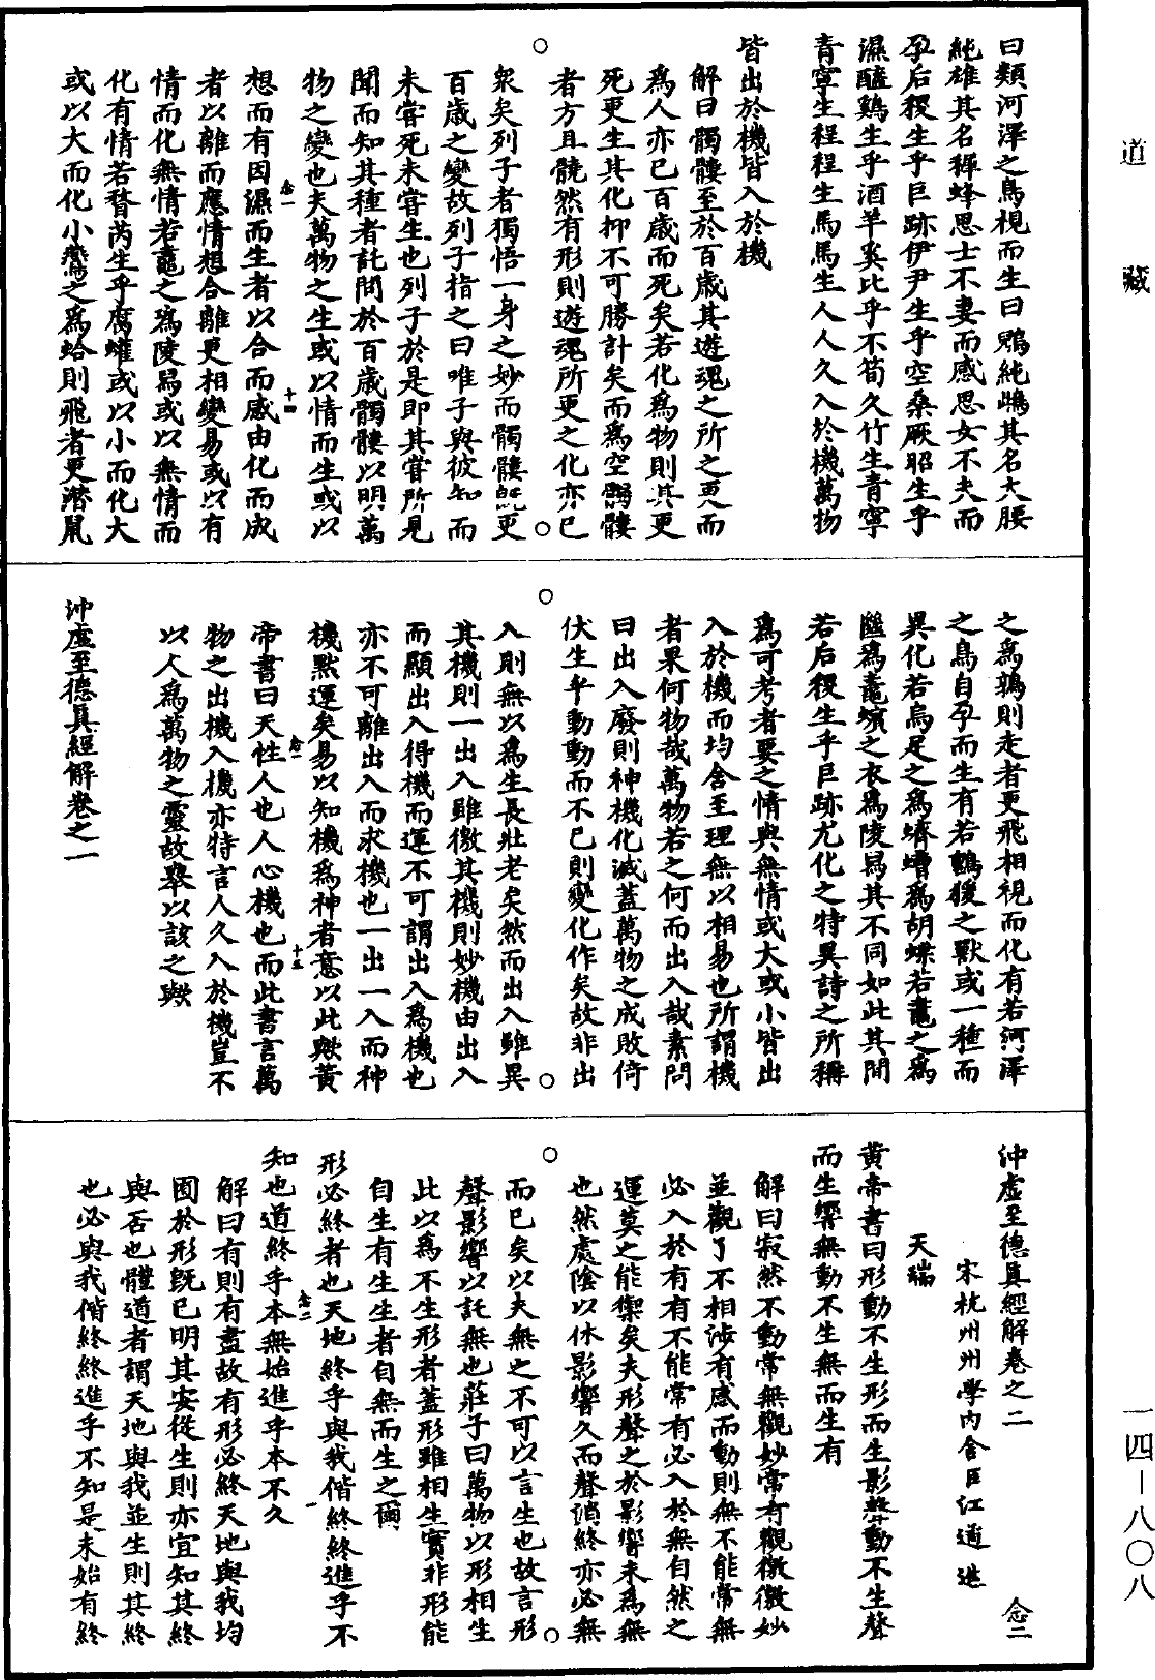 道藏
曰類河澤之鳥視而生曰鶂純雌其名大腰
純雄其名穉蜂思士不妻而感思女不夫而
孕后稷生乎巨跡伊尹生乎空桑厥昭生乎
濕醯雞生乎酒羊奚比乎不筍久竹生青寧
青寧生程程生馬馬生人人久入於機萬物
皆出於機皆入於機
解曰髑髏至於百歲其遊魂之所之更而
為人亦已百歲而死矣若化為物則其更
死更生其化抑不可勝計矣而為空髑髏
者方且髐然有形則遊魂所更之化亦已
衆矣列子者獨悟一身之妙而髑髏旣更
百歲之變故列子指之曰唯子與彼知而
未嘗死未嘗生也列子於是即其嘗所見
聞而知其種者託問於百歲髑髏以明萬
物之變也夫萬物之生或以情而生或以
念一
十四
想而有因濕而生者以合而感由化而成
者以離而應情想合離更相變易或以有
情而化無情若鼃之為陵舄或以無情而
化有情若瞀芮生乎腐蠸或以小而化大
或以大而化小鷰之為蛤則飛者更潛鼠
之為鶉則走者更飛相視而化有若河澤
之鳥自孕而生有若亶爰之獸或一種而
異化若烏足之為蠐螬為胡蝶若鼃之為
㡭為鼃蠙之衣為陵舄其不同如此其間
若后稷生乎巨跡尤化之特異詩之所稱
為可考者要之情與無情或大或小皆出
入於機而均舍至理無以相易也所謂機
者果何物哉萬物若之何而出入哉素問
曰出入廢則神機化滅蓋萬物之成敗倚
伏生乎動動而不已則變化作矣故非出
入則無以為生長壯老矣然而出入雖異
其機則一出入雖微其機則妙機由出入
而顯出入得機而運不可謂出入為機也
亦不可離出入而求機也一出一入而神
機默運矣易以知機為神者意以此歟黃
念一
十五
帝書曰天性人也人心機也而此書言萬
物之出機入機亦特言人久入於機豈不
以人為萬物之靈故舉以該之歟
沖虛至德真經解卷之一
沖虛至德真經解卷之二
念二
宋杭州州學內舍臣江遹進
天瑞
黃帝書曰形動不生形而生影聲動不生聲
而生響無動不生無而生有
解曰寂然不動常無觀妙常有觀徼徼妙
並觀了不相涉有感而動則無不能常無
必入於有有不能常有必入於無自然之
運莫之能禦矣夫形聲之於影響未為無
也然處陰以休影響久而聲消終亦必無
而已矣以夫無之不可以言生也故言形
聲影響以託無也莊子曰萬物以形相生
此以為不生形者蓋形雖相生實非形能
自生有生生者自無而生之爾
形必終者也天地終乎與我偕終終進乎不
念二
一
知也道終乎本無始進乎本不久
解曰有則有盡故有形必終天地與我均
囿於形旣已明其安從生則亦宜知其終
與否也體道者謂天地與我並生則其終
也必與我偕終終進乎不知是未始有終
一四—八〇八